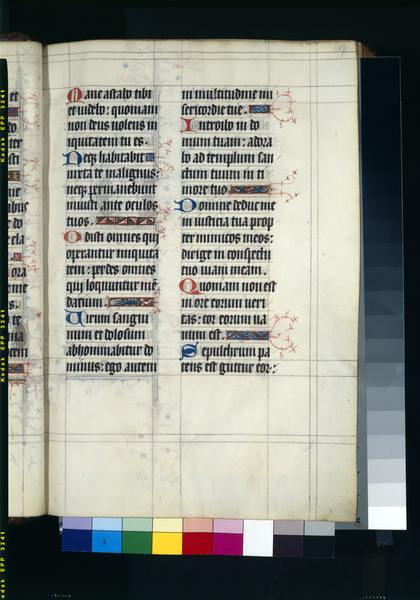 Mane astabo tibi
et videbo: quoniam
non deus volens in
iquitatem tu es.
Neqz habitabit
iuxta te malignus:
neqz permanebunt
iniusti ante oculos
tuos.
Odisti omnes qui
operantur iniquita
tem: perdes omnes
qui loquuntur mē
dacium
Virum sangui
num et dolosum
abhominabitur do
minus: ego autem
in multitudine mi
sericordie tue.
Introibo in do
mum tuam: adora
bo ad templum san
ctum tuum in ti
more tuo
Domine deduc me
in iusticia tua prop
ter inimicos meos:
dirige in conspectu
tuo viam meam.
Quoniam non est
in ore eorum veri
tas: cor eorum va
num est.
Sepulchrum pa
tens est guttur eor:
Kodak EPP 3241
Kodak EPP 3241
Kodak EPP 3241